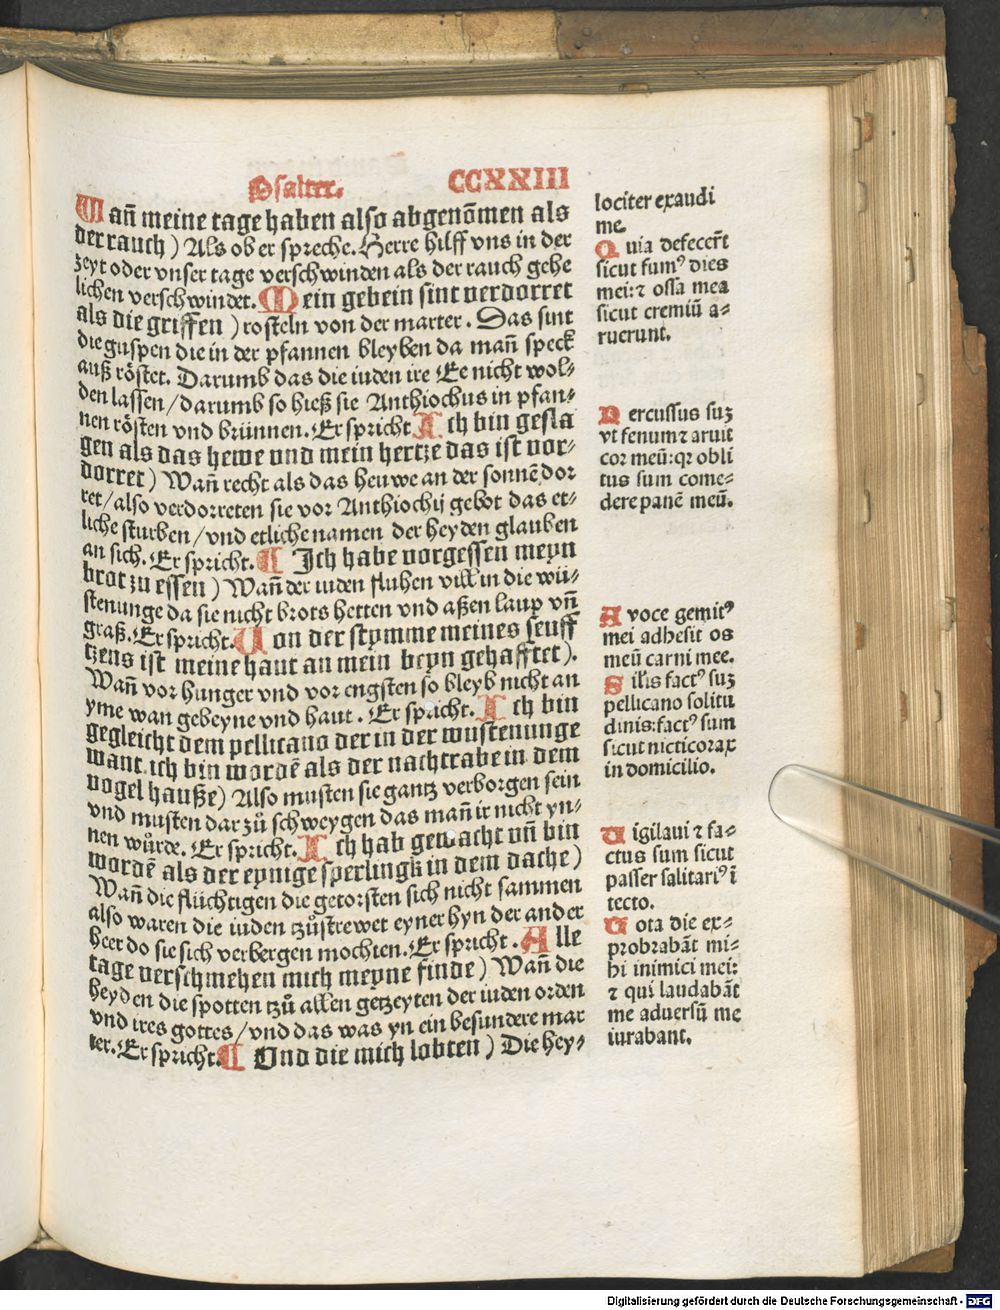 Psalter. CCXXIII
Wañ meine tage haben also abgenõmen als
der rauch) Als ob er spreche. Herre hilff vns in der
zeyt oder vnser tage verschwinden als der rauch gehe
lichen verschwindet. Mein gebein sint verdorret
als die griffen) rosteln von der marter. Das sint
die guspen die in der pfannen bleyben da mañ speck
auß röstet. Darumb das die iuden ire Ee nicht wol⸗
den lassen/darumb so hieß sie Anthiochus in pfan⸗
nen rösten vnd brünnen. Er spricht Ich bin gesla
gen als das hewe vnd mein hertze das ist vor⸗
dorret) Wañ recht als das heuwe an der sonnē dor
ret/also verdorreten sie vor Anthiochij gebot das et⸗
liche sturben/vnd etliche namen der heyden glauben
an sich. Er spricht. ¶ Ich habe vorgessen meyn
brot zu essen) Wañ der iuden fluhen vill in die wü⸗
stenunge da sie nicht brots hetten vnd aßen laup vñ
graß. Er spricht. Von der stymme meines seuff
tzens ist meine haut an mein beyn gehafftet).
Wañ vor hunger vnd vor engsten so bleyb nicht an
yme wan gebeyne vnd haut. Er spricht. Ich bin
gegleicht dem pellicano der in der wustenunge
want. ich bin wordē als der nachtrabe in dem
vogel hauße) Also musten sie gantz verborgen sein
vnd musten dar zů schweygen das mañ ir nicht yn⸗
nen wůrde. Er spricht. Ich hab gewacht vñ bin
wordē als der eynige sperlingk in dem dache)
Wañ die flüchtigen die getorsten sich nicht sammen
also waren die iuden tzůstrewet eyner hyn der ander
heer do sie sich verbergen mochten. Er spricht. Alle
tage verschmehen mich meyne finde) Wañ die
heyden die spotten tzů allen getzeyten der iuden orden
vnd ires gottes/vnd das was yn ein besundere mar
ter. Er spricht. ¶ Vnd die mich lobten) Die hey⸗
lociter exaudi
me.
Quia defecerūt
sicut fumꝰ dies
mei: ⁊ ossa mea
sicut cremiū a⸗
ruerunt.
Percussus suꝫ
vt fenum ⁊ aruit
cor meū: qꝛ obli
tus sum come⸗
dere panē meū.
A voce gemitꝰ
mei adhesit os
meū carni mee.
Silis factꝰ suꝫ
pellicano solitu
dinis: factꝰ sum
sicut nicticorax
in domicilio.
Vigilaui ⁊ fa⸗
ctus sum sicut
passer salitariꝰ ī
tecto.
Tota die ex⸗
probrabāt mi⸗
hi inimici mei:
⁊ qui laudabāt
me aduersū me
iurabant.
Digitalisierung gefördert durch die Deutsche Forschungsgemeinschaft - DFG